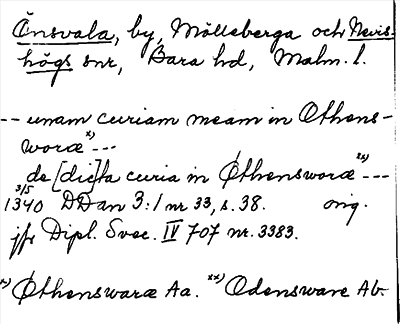 Önsvala, by, Mölleberga och Nevis-
högs snr, Bara hd, Malm. l.
-- unam curiam meam in Othens-
woræ x) ---
de [dic]ta curia in Øthensworæ xx) ---
3/5
1340 DDan 3:1 nr 33, s. 38. orig.
jfr Dipl. Svec. IV 707 nr. 3383.
x) Øthenswaræ Aa. xx) Odensware Ab.